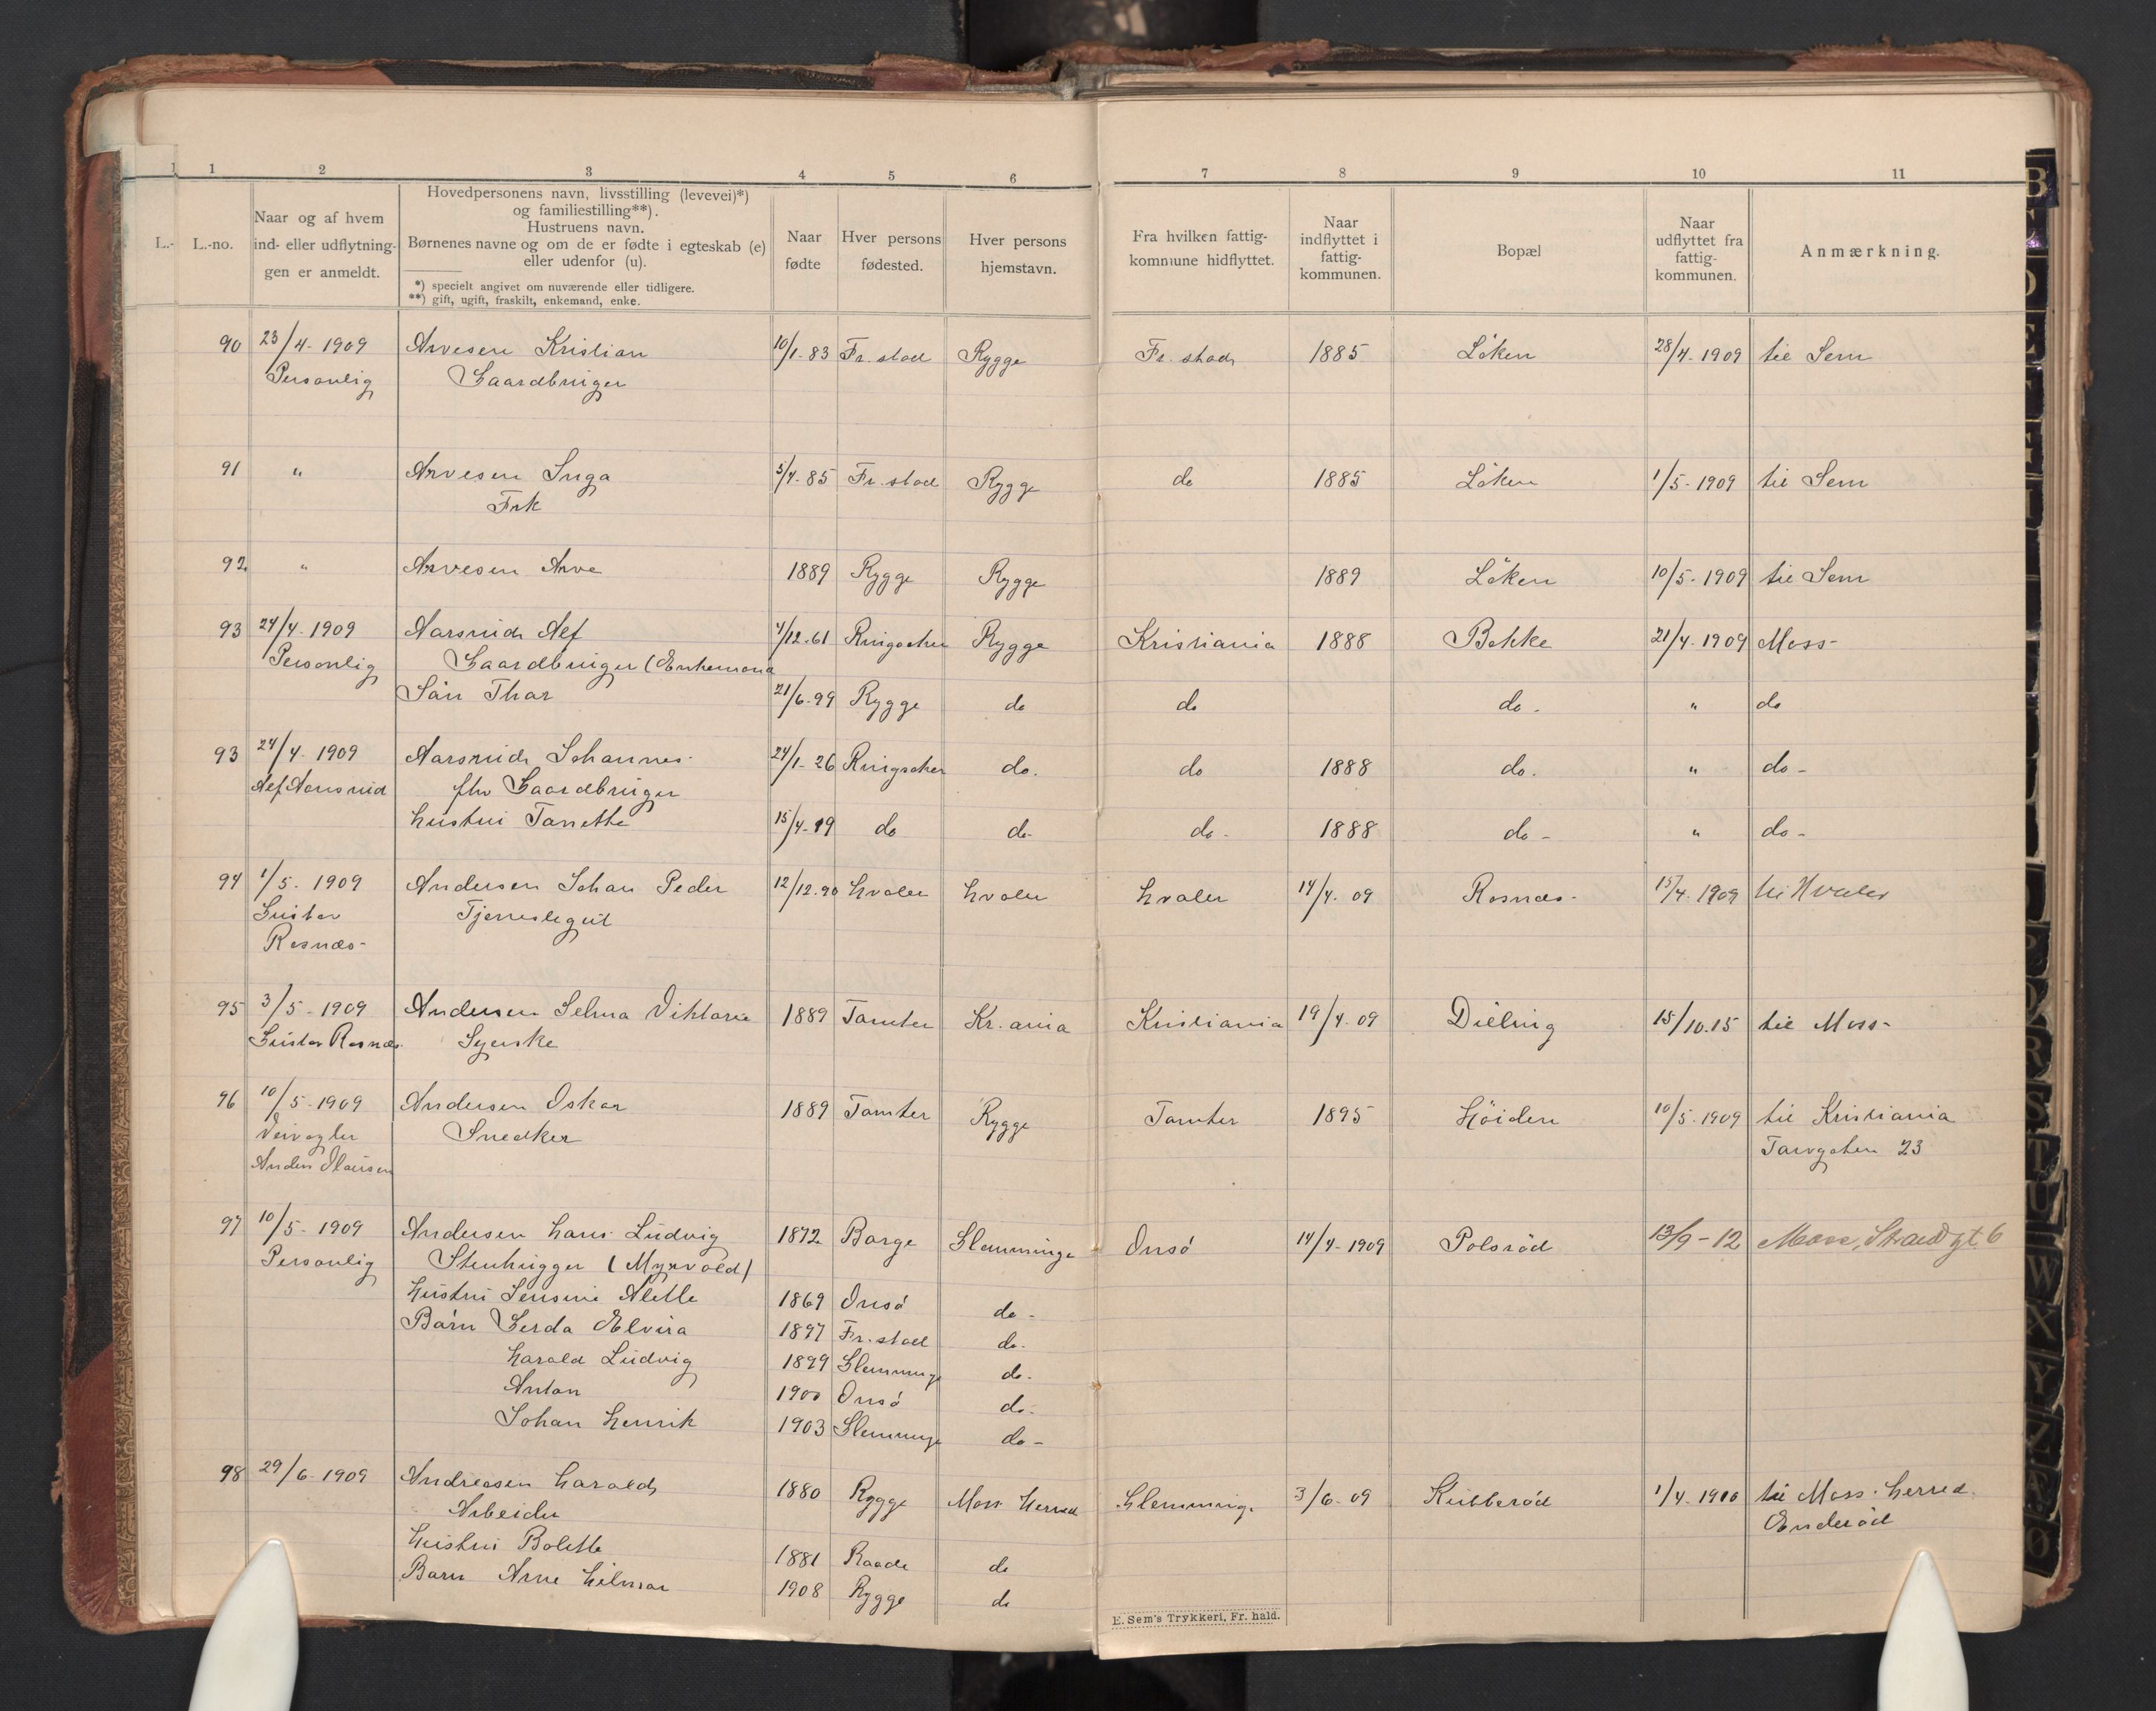 1 2 3 4 5 6 7 8 9 10 11
L.- L.-no.
Naar og af hvem
ind- eller udflytning-
gen er anmeldt.
Hovedpersonens navn, livsstilling (levevei)*)
og familiestilling**).
Hustruens navn.
Børnenes navne og om de er fødte i egteskab (e)
eller udenfor (u).
*) specielt angivet om nuværende eller tidligere.
**) gift, ugift, fraskilt, enkemand, enke.
Naar
fødte
Hver persons
fødested.
Hver persons
hjemstavn.
Fra hvilken fattig-
kommune hidflyttet.
Naar
indflyttet i
fattig-
kommunen.
Bopæl
Naar
udflyttet fra
fattig-
kommunen.
Anmærkning.
90 23/4-1909 Arvesen Kristian 10/1-83 Fr.stad Rygge Fr.stad 1885 Löken 28/4.1909 til Sem
Personlig Gaardbruger
91 " Arvesen Inga 5/4-85 Fr.stad Rygge do 1885 Löken 1/5-1909 til Sem
Frk
92 " Arvesen Arve 1889 Rygge Rygge 1889 Löken 10/5-1909 til Sem
93 24/4-1909 Aarsrud Alf 4/12-61 Ringsaker Rygge Kristiania 1888 Bakke 21/4-1909 Moss-
Personlig Gaardbruger (Enkemand
Sön Thor 21/6-99 Rygge do do do - " do
93 24/4-1909 Aarsrud Johannes 24/1-26 Ringsaker do. do 1888 do. " do-
Alf Aarsrud fhv Gaardbruger
Hustru Tanette 15/4-19 do do- do- 1888 do- " do-
94 1/5.1909 Andersen Johan Peder 12/12.90 Hvaler Hvaler Hvaler 14/4.09 Rosnæs- 15/4.1909 til Hvaler
Gustav Tjenestegut
Rosnæs-
95 3/5-1909 Andersen Selma Viktoria 1889 Tomter Kr.ania Kristiania 19/4.09 Dilling 15/10.15 til Moss-
Gustav Rosnæs Syerske
96 10/5-1909 Andersen Oskar 1889 Tomter Rygge Tomter 1895 Höiden 10/5-1909 til Kristiania
Veivogter Snedker Torvgaten 23
Anders Olausen
97 10/5-1909 Andersen Hans Ludvig 1872 Borge Glemminge Onsö 14/4-1909 Polsröd 13/9-12 Moss, Strandgt 6
Personlig Stenhugger (Myrvold)
Hustru Jensine Alette 1869 Onsö do-
Barn Gerda Elvira 1897 Fr.stad do-
Harald Ludvig 1899 Glemminge do-
Anton 1900 Onsö do-
Johan Henrik 1903 Glemminge do-
98 29/6-1909 Andreasen Harald 1880 Rygge Moss Herred Glemminge 3/6-09 Kubberöd 1/4-1910 til Moss Herred
Arbeider Enderöd
Hustru Bolette 1881 Raade do
Barn Arne Hilmar 1908 Rygge do
E. Sem's Trykkeri, Fr. hald.